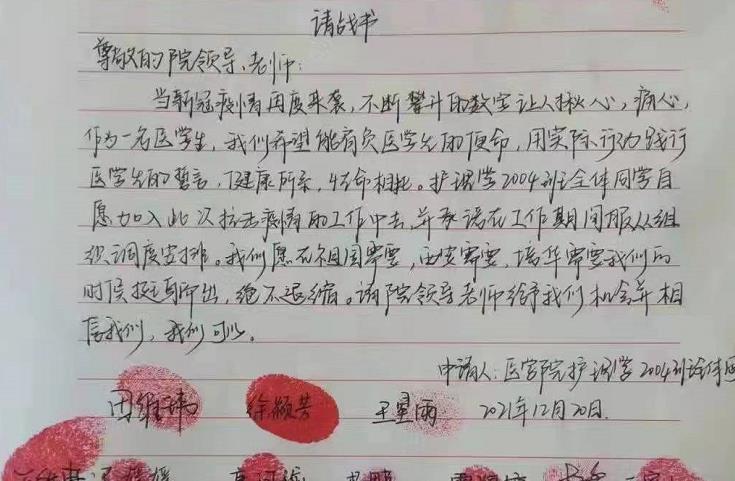 请战书
尊敬的院领导、老师:
当新冠疫情再度来袭,不断攀升的数字让人揪心,痛心,
作为一名医学生,我们希望能肩负医学生的使命,用实际行动践行
医学生的誓言,“健康所系,性命相托。护理学2004班全体同学自
愿加入此次抗击疫情的工作中去,并承诺在工作期间服从组
织调度安排。我们愿在祖国需要,西安需要,培华需要我们的
时候挺身而出,绝不退缩。请院领导老师给予我们机会并相
信我们,我们可以。
申请人:医学院护理学2004班全体同
田维玮 徐颖芳 王星雨 2021年12月20日.